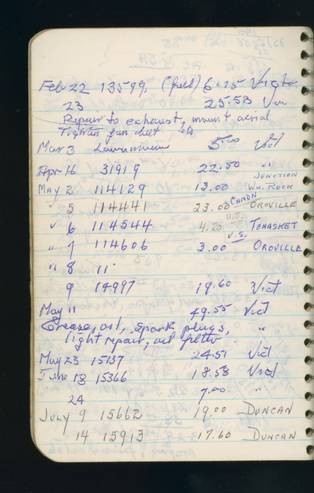 Feb 22 13599, (fuel) 6.25 Vict.
23 25.53 Vic
Repair to exhaust, mount aerial
Tighten fan belt
Mar 3 5.00 Vict
Apr 16 31919 22.50 "
JUNCTION
May 2 114129 13.00 WH. ROCK
" 5 114441 23.00 CANDN OROVILLE
" 6 114544 4.20 U.S. TONASKET
" 7 114606 3.00 U.S. OROVILLE
" 8 "
9 14997 19.60 Vict
May 11 49.55 Vict
Grease, oil, spark plugs,
light repair, oil filter "
May 23 15137 24.51 Vict
June 13 15366 18.58 Vict
24 7.00 "
JULY 9 15662 19.00 DUNCAN
14 15913 17.60 DUNCAN